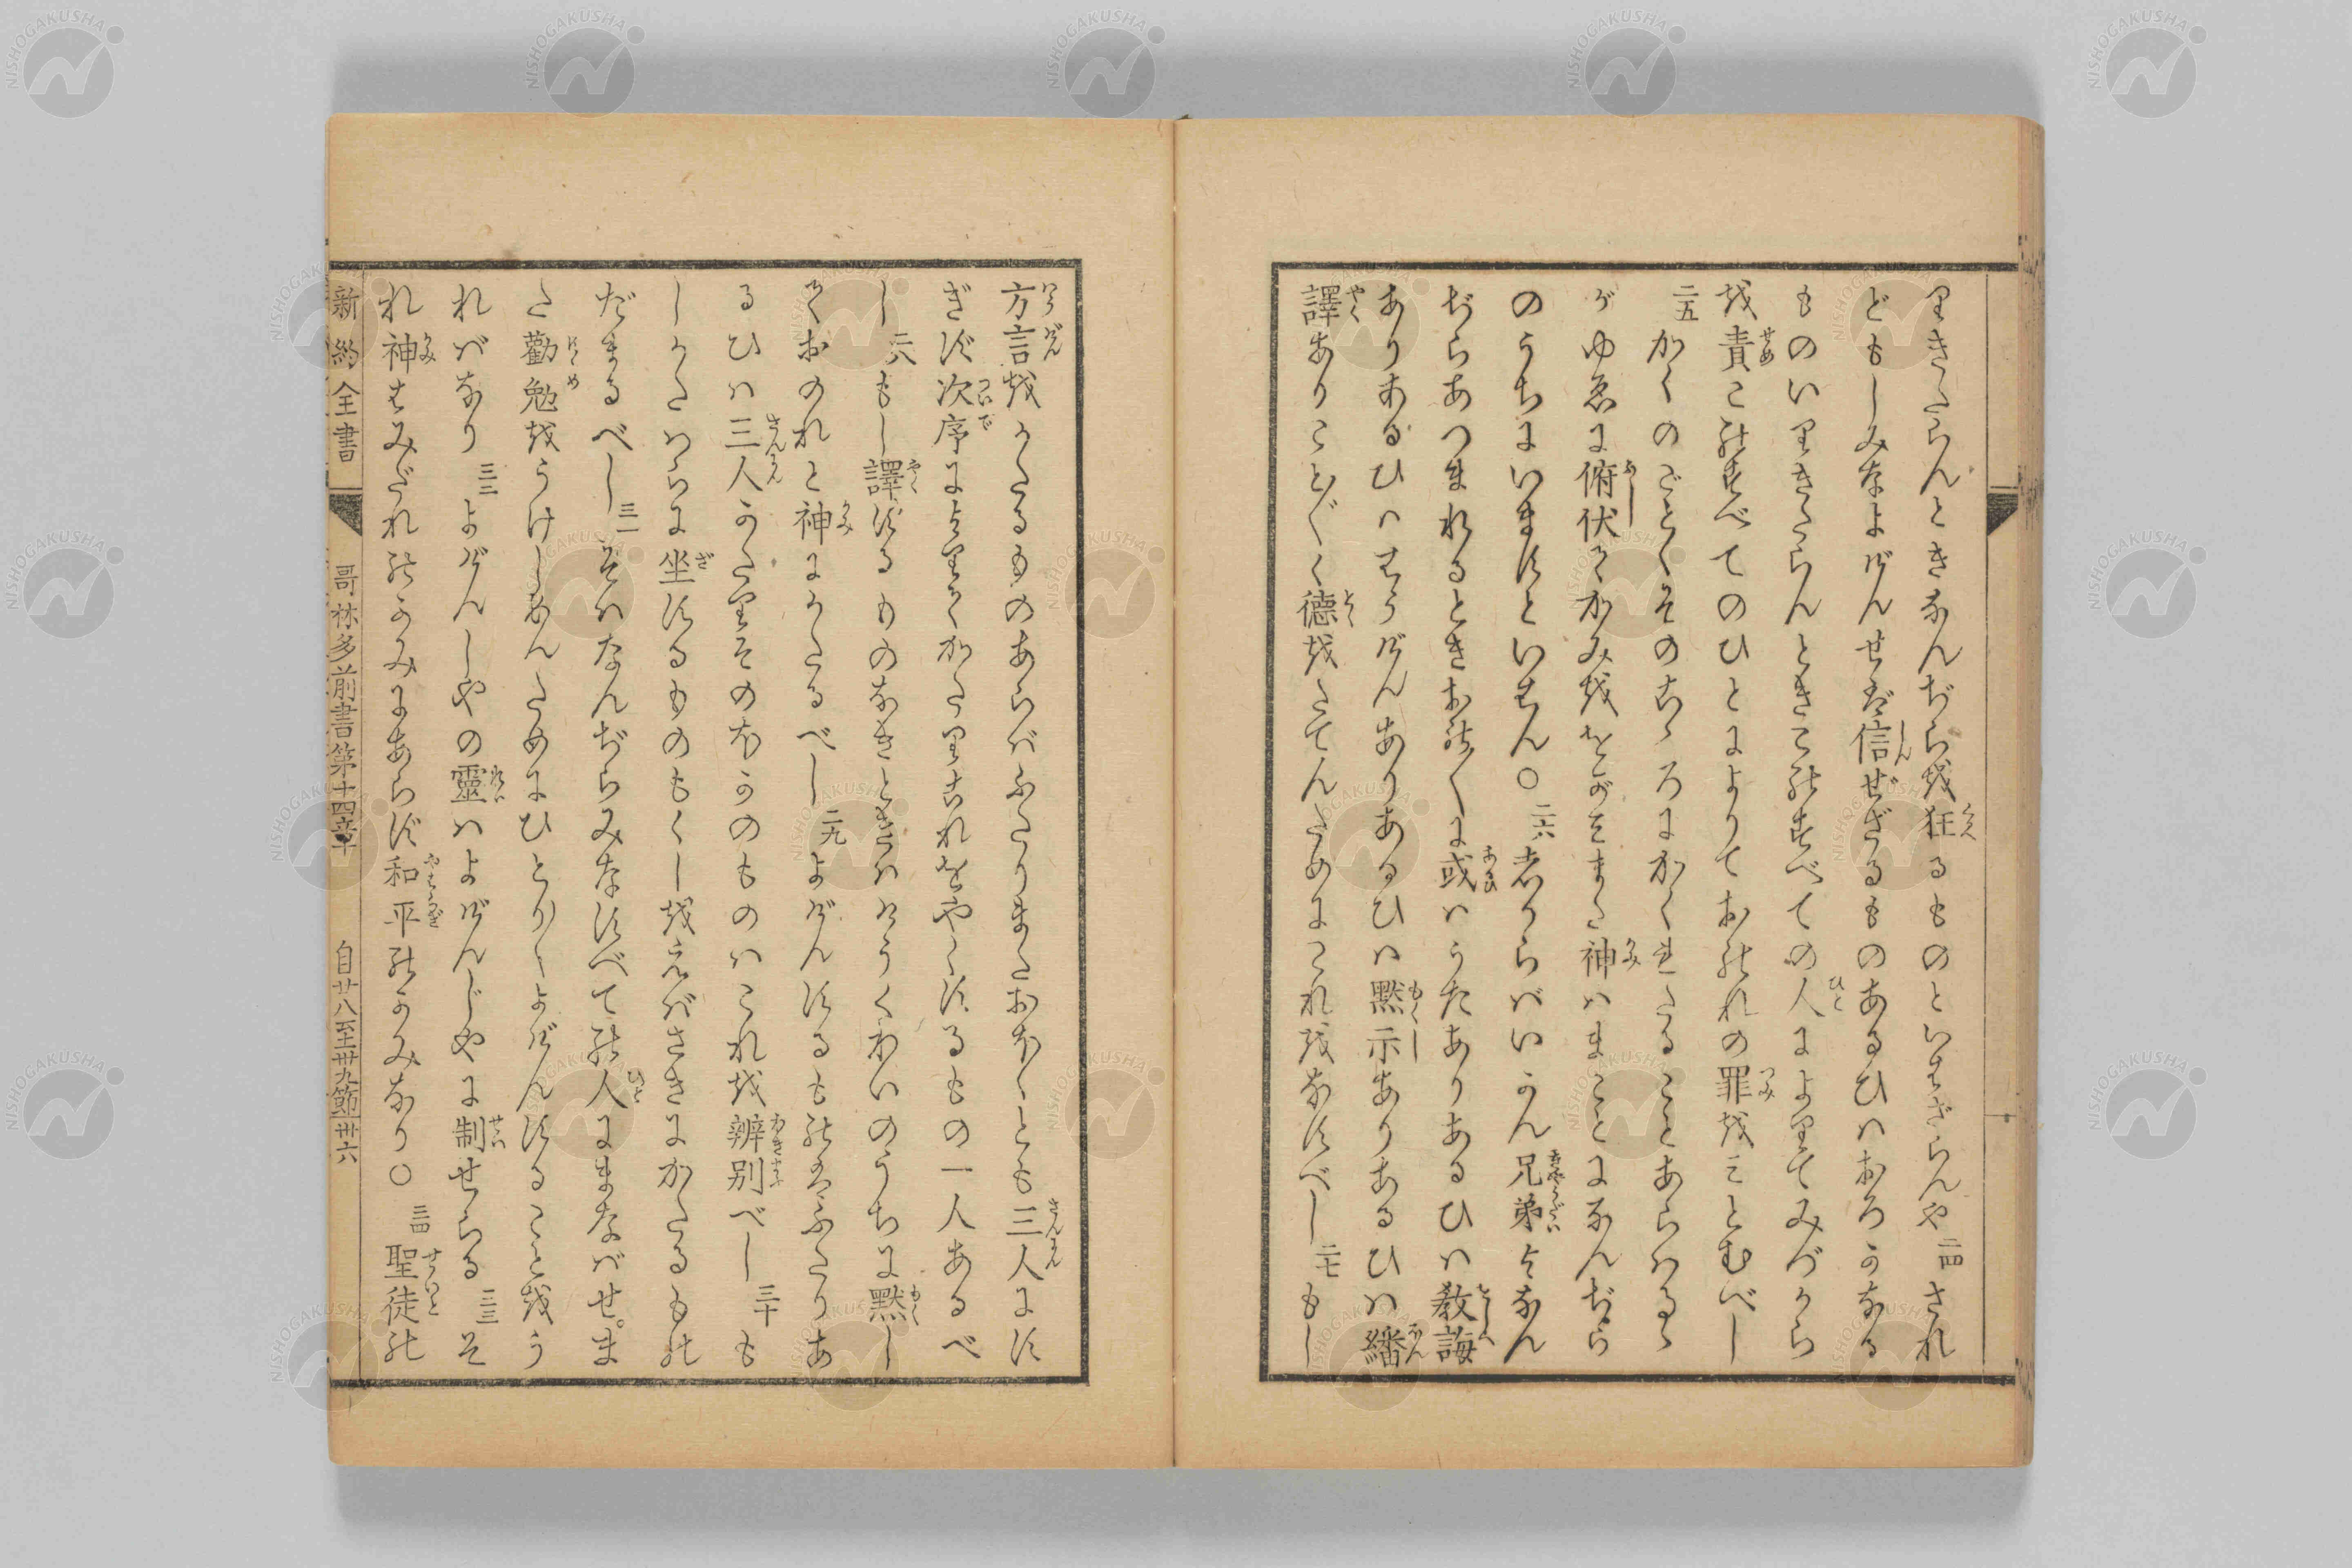 りきたらんときなんぢらを狂るものといはざらんや二四され
どもしみなよげんせば信ぜざるものあるひはおろかなる
ものいりきたらんときこのすべての人によりてみづから
を責このすべてのひとによりておのれの罪をミとむべし
二五かくのごとくそのこゝろにかくれたることあらはるゝ
がゆゑに俯伏てかみををがミまた神はまことになんぢら
のうちにいますといはん○二六しからばいかん兄弟よなん
ぢらあつまれるときおの〱に或はうたありあるひは教誨
ありあるひははうげんありあるひは黙示ありあるひは繙
譯ありこと〲く徳をたてんためにこれをなすべし二七もし
方言をかたるものあらばふたりまたおほくとも三人にす
ぎず次序によりてかたりこれをやくするもの一人あるべ
し二八もし譯するものなきときはけうくわいのうちに黙し
ておのれと神にかたるべし二九よげんするものはふたりあ
るひは三人かたりそのほかのものはこれを辨別べし三十も
しかたはらに坐するものもくしをえばさきにかたるもの
だまるべし三一そはなんぢらみなすべての人にまなばせま
た勸勉をうけしめんためにひとり〱よげんすることをう
ればなり三二よげんしやの靈はよげんじやに制せらる三三そ
れ神はみだれのかみにあらず和平のかみなり○三四聖徒の
新約全書 哥林多前書第十四章 自廿八至卅九節 卅六